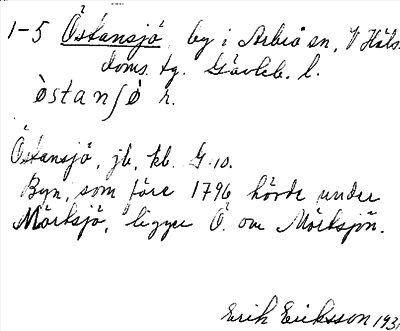 1-5 Östansjö, by i Arbrå sn, V Häls.
doms. tg. Gävleb. l.
òstanʃò n.
Östansjö, jb, kb. G.10.
Byn, som före 1796 hörde under
Mörksjö, ligger Ö. om Mörksjön.
Erik Eriksson 193